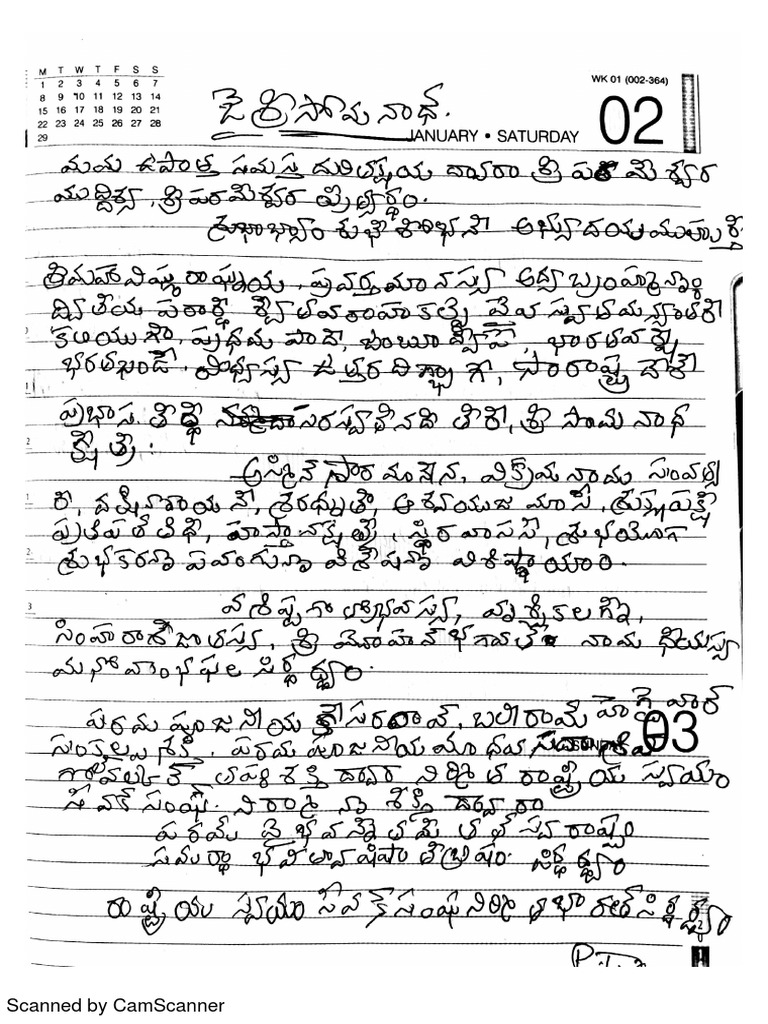 M T W T F S S
1 2 3 4 5 6 7
8 9 10 11 12 13 14
15 16 17 18 19 20 21
22 23 24 25 26 27 28
29
WK 01 (002-364)
02
జై శ్రీ సోమనాథ్.
JANUARY • SATURDAY
మమ ఉపాత్త సమస్త దురితక్షయ ద్వారా శ్రీ పరమేశ్వర
ముద్దిశ్య, శ్రీ పరమేశ్వర ప్రీత్యర్థం.
శుభాభ్యాం శుభే శోభనే అభ్యుదయ ముహూర్తే
శ్రీమహావిష్ణురాజ్ఞయ, ప్రవర్తమానస్య అద్య బ్రంహ్మణ
ద్వితీయ పరార్థే శ్వేతవరాహకల్పే వైవస్వతమన్వంతరే
కలియుగే, ప్రథమ పాదే, జంబూద్వీపే, భారతవర్షే
భరతఖండే, వింధ్యస్య ఉత్తర దిగ్భాగే, సౌరాష్ట్ర దేశే
ప్రభాస తీర్థే సరస్వతినది తీరే, శ్రీ సోమనాథ
క్షేత్రే.
అస్మిన్ విక్రమ నామ సంవత్స
రే, దక్షిణాయనే, శరదృతౌ, ఆశ్వయుజ మాసే, శుక్లపక్షే
తిథి, హస్తా నక్షత్రే, స్థిరవాసరే, శుభయోగ
శుభకరణ ఏవంగుణ విశేషణ విశిష్టాయాం.
వశిష్ట గోత్రోద్భవస్య, వృశ్చికలగ్నే,
సింహరాశి జాతస్య, శ్రీ మోహన్ భగవత్ నామ ధేయస్య
మనోవాంఛఫల సిద్ధ్యర్థం.
పరమ పూజనీయ కేశవరావ్, బలీరామ్ హెగ్డేవార్
సంకల్ప శక్తి, పరమ పూజనీయ మాధవ సదాశివ
03
గోల్వల్కర్ తపఃశక్తి ద్వారా నిర్మిత రాష్ట్రీయ స్వయం
సేవక్ సంఘ్. నిర్మాణ శక్తి ద్వారా
పరమ్ వైభవన్నేతుమేతత్ స్వరాష్ట్రం
సమర్థా భవత్వాశిషాతే భృశం. సిద్ధ్యర్థం
రాష్ట్రీయ స్వయం సేవక్ సంఘ నిర్మిత భారత్ సిద్ధ్యర్థం
Scanned by CamScanner